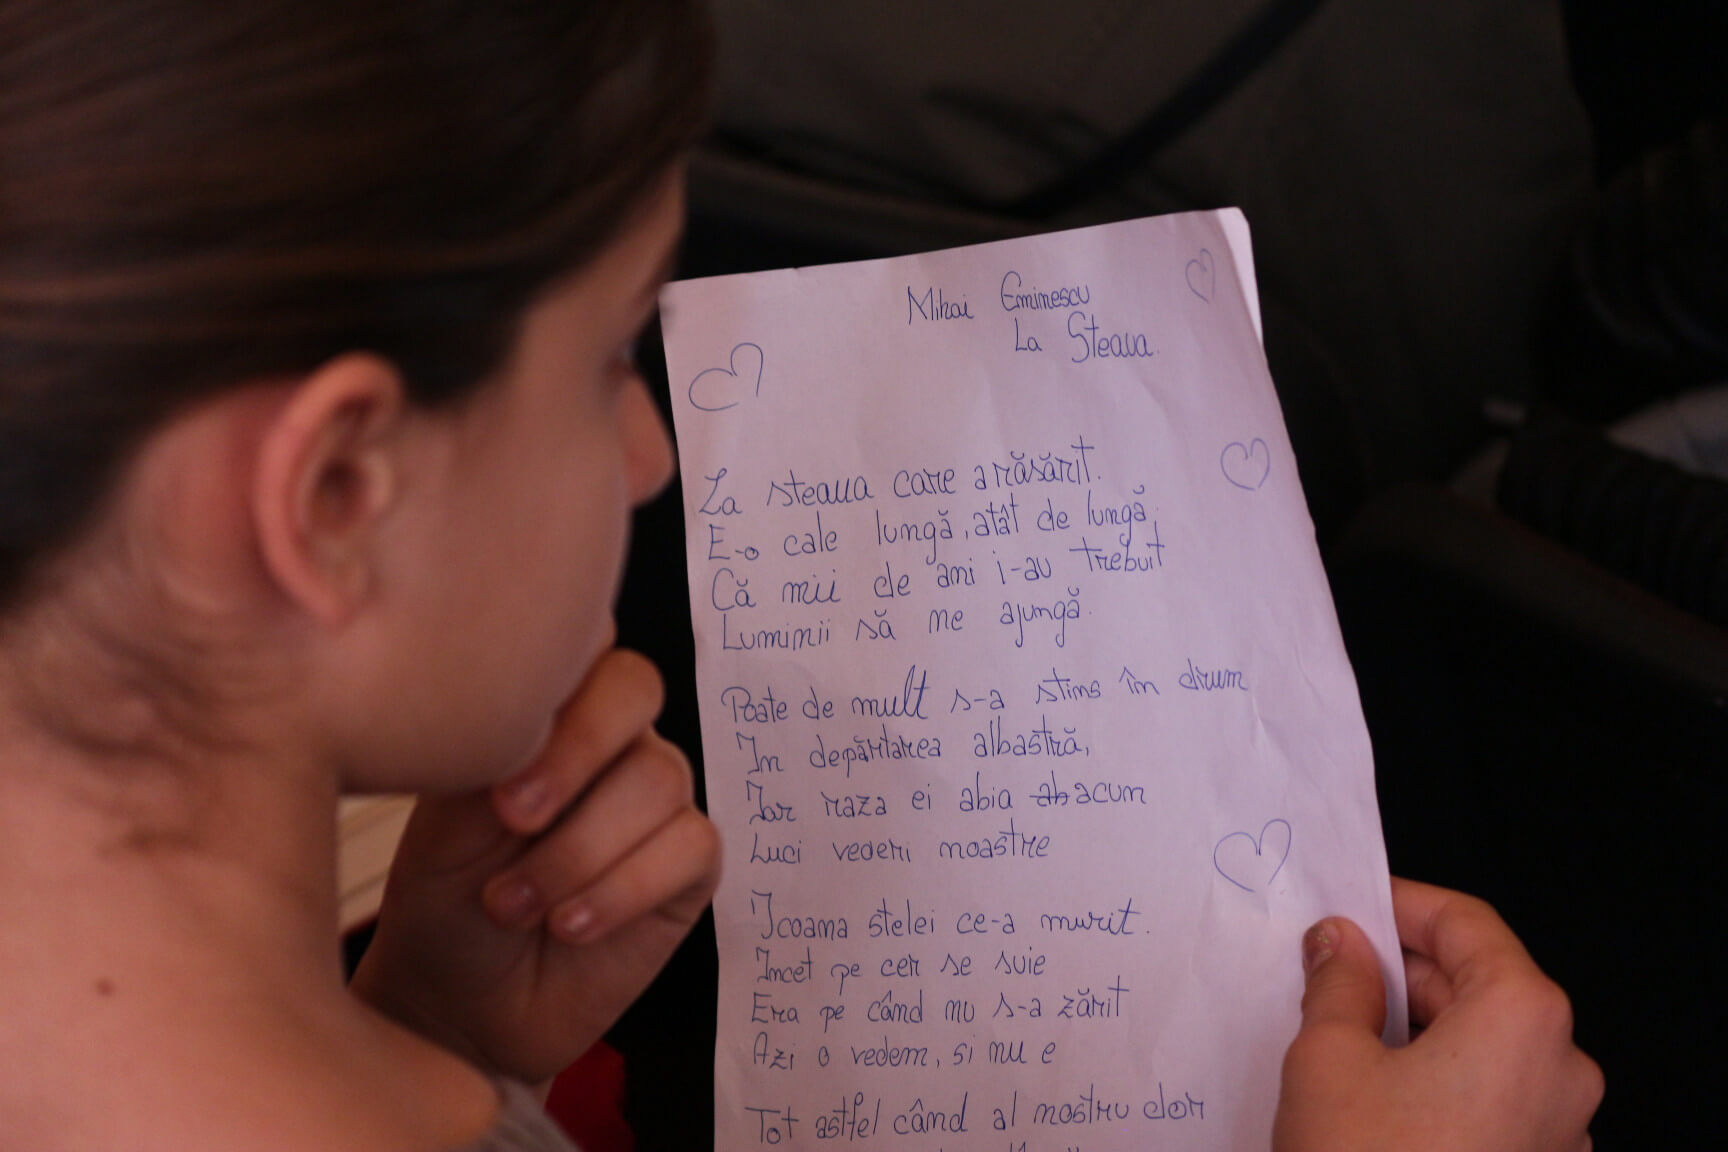 Mihai Eminescu
La Steaua
La steaua care a răsărit.
E-o cale lungă, atât de lungă,
Că mii de ani i-au trebuit
Luminii să me ajungă.
Poate de mult s-a stins în drum
In depărtarea albastră,
Iar raza ei abia ab acum
Luci vederi noastre
Icoana stelei ce-a murit.
Incet pe cer se suie
Era pe când nu s-a zărit
Azi o vedem, si nu e
Tot astfel când al nostru dor